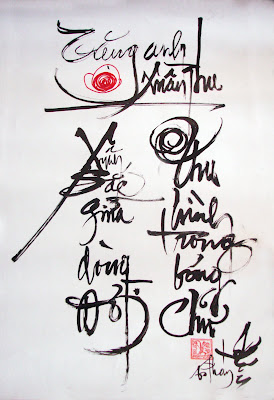 Tặng anh
Xuân Thu
Xuân
để
giữa
dòng
đời
Thu
hình
trong
bóng
chữ